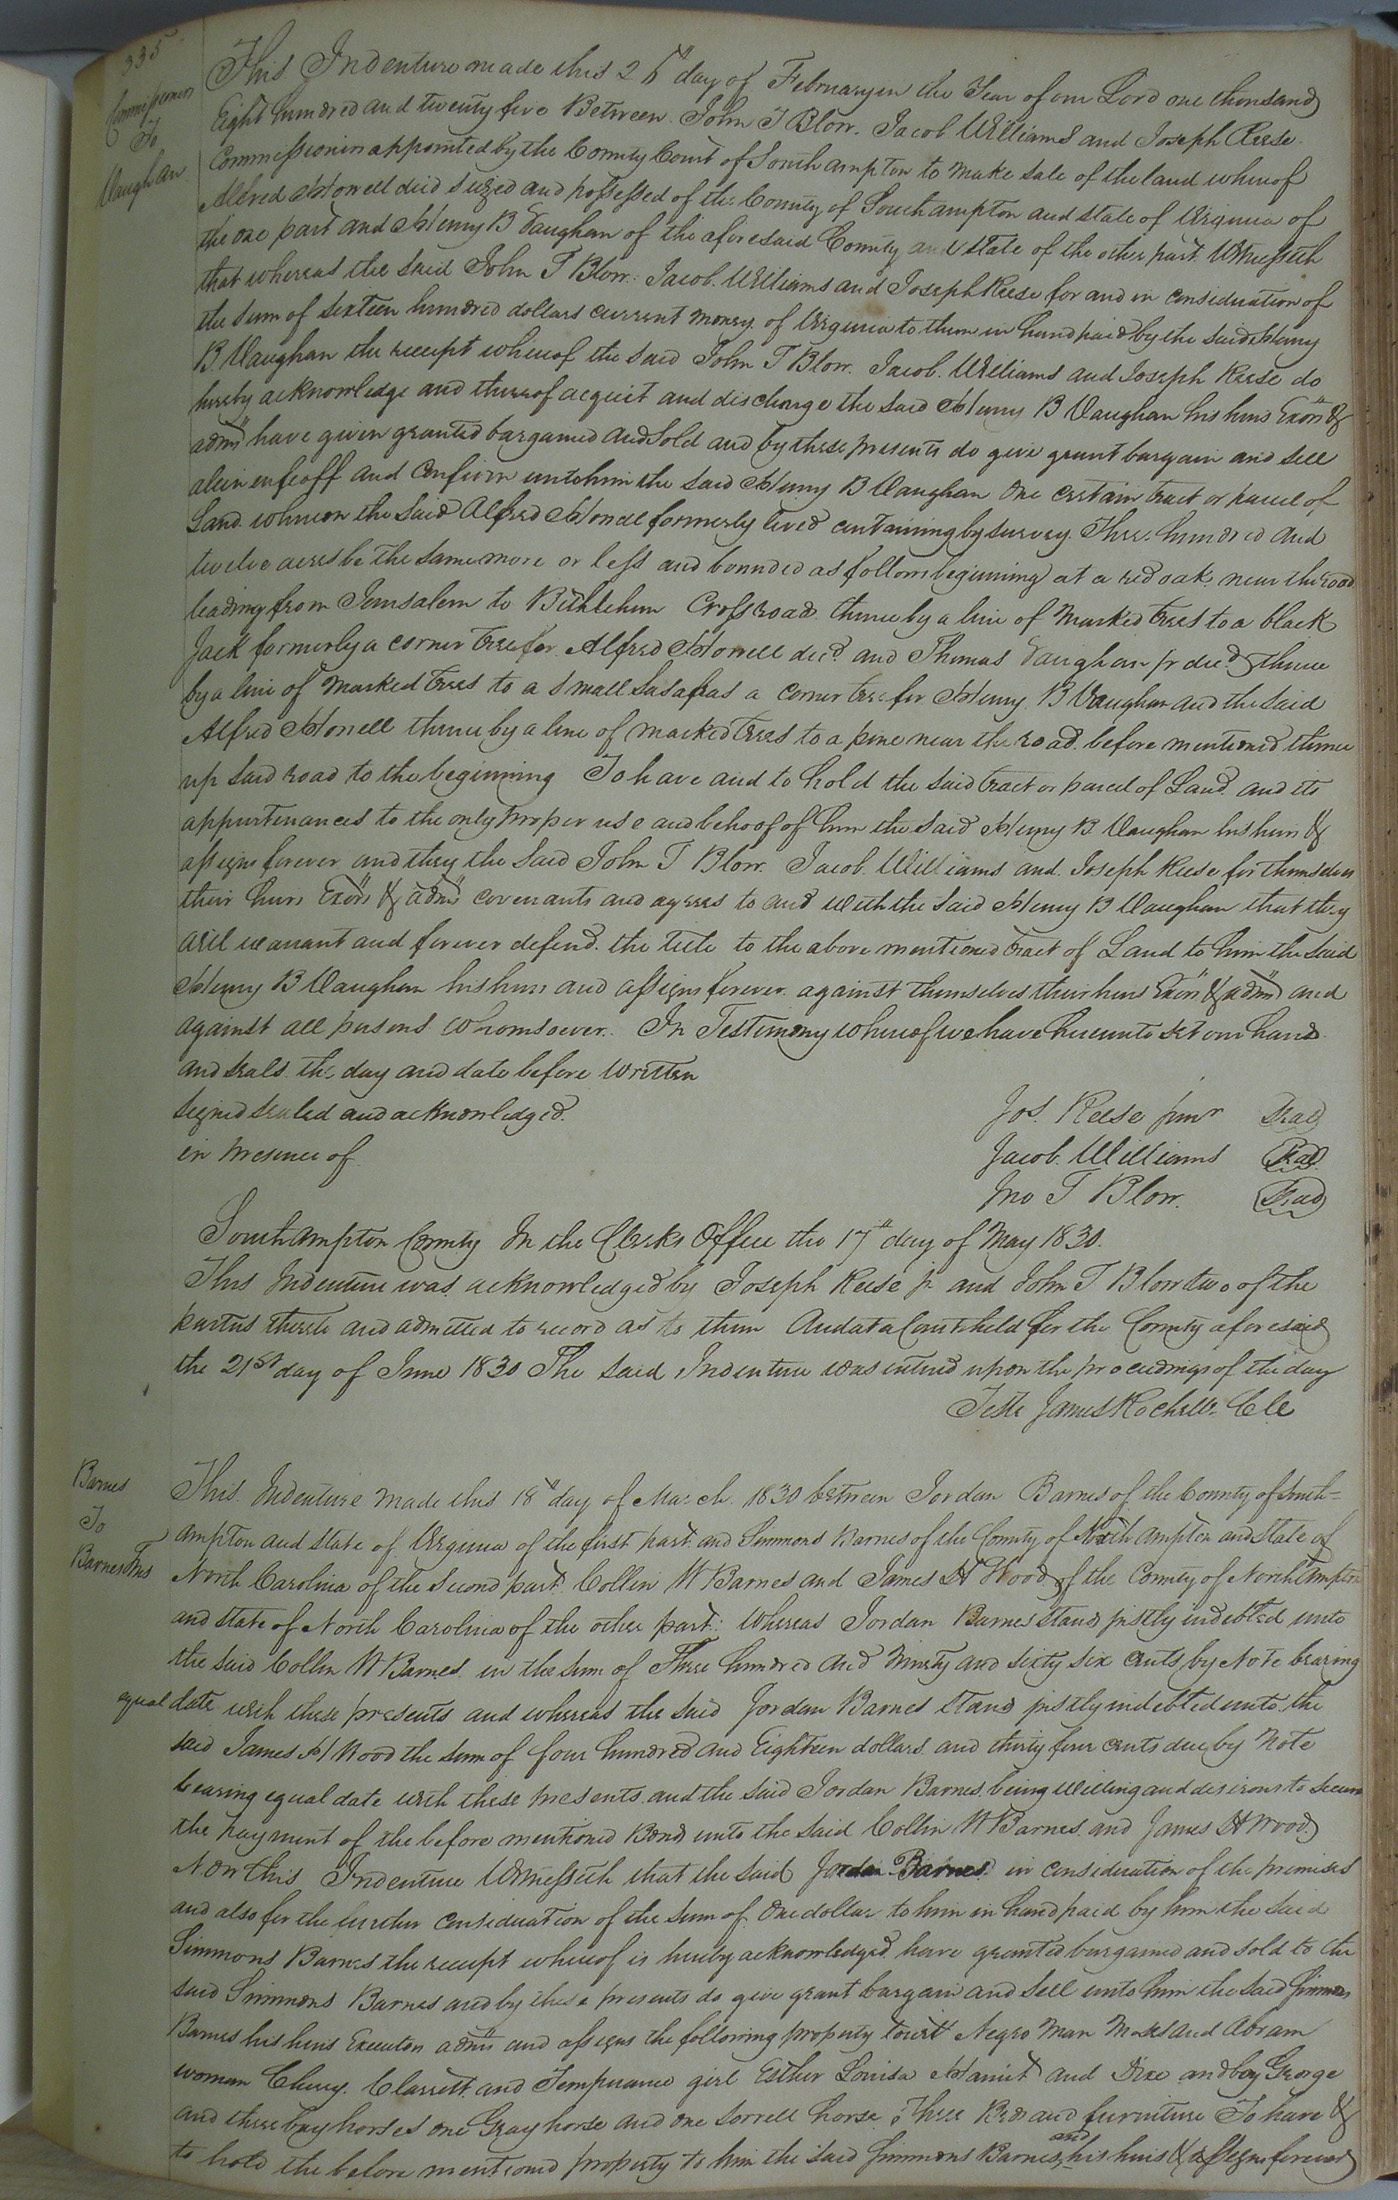 335
Commissioners
To
Vaughan
This Indenture made this 26th day of February in the Year of our Lord one thousand
Eight hundred and twenty five Between John T Blow. Jacob Williams and Joseph Reese
Commissioners appointed by the County Court of Southampton to make sale of the land whereof
Alfred Howell died seized and possessed of the County of Southampton and state of Virginia of
the one part and Henry B Vaughan of the aforesaid County and state of the other part Witnesseth
that whereas the said John T Blow. Jacob. Williams and Joseph Reese for and in consideration of
the sum of sixteen hundred dollars current money of Virginia to them in hand paid by the said Henry
B Vaughan the receipt whereof the said John T Blow. Jacob. Williams and Joseph Reese do
hereby acknowledge and thereof acquit and discharge the said Henry B Vaughan his heirs Exors &
adms have given granted bargained and sold and by these presents do give grant bargain and sell
alien enfeoff and confirm unto him the said Henry B Vaughan One certain tract or parcel of
Land whereon the said Alfred Howell formerly lived containing by survey Three hundred and
twelve acres be the same more or less and bounded as follows beginning at a red oak near the road
leading from Jerusalem to Bethlehem Cross road thence by a line of marked trees to a black
Jack formerly a corner tree for Alfred Howell decd and Thomas Vaughan jr decd thence
by a line of marked trees to a small Sasafras a corner tree for Henry B Vaughan and the said
Alfred Howell thence by a line of marked trees to a pine near the road before mentioned thence
up said road to the beginning To have and to hold the said tract or parcel of Land and its
appurtenances to the only proper use and behoof of him the said Henry B Vaughan his heirs &
assigns forever and they the said John T Blow. Jacob. Williams and Joseph Reese for themselves
their heirs Exors & adms covenants and agrees to and with the said Henry B Vaughan that they
will warrant and forever defend the title to the above mentioned tract of Land to him the said
Henry B Vaughan his heirs and assigns forever against themselves their heirs Exors & adms and
against all persons whomsoever. In Testimony whereof we have hereunto set our hands
and seals the day and date before written
signed sealed and acknowledged
in presence of
Jos. Reese junr Seal
Jacob. Williams Seal
Jno T Blow. Seal
Southampton County In the Clerks Office the 17th day of May 1830.
This Indenture was acknowledged by Joseph Reese jr and John T Blow two of the
parties thereto and admitted to record as to them And at a Court held for the County aforesaid
the 21st day of June 1830 The said Indenture was entered upon the proceedings of the day
Teste James Rochelle Clk
Barnes
To
Barnes Trus
This Indenture made this 18th day of March 1830 between Jordan Barnes of the County of South=
ampton and state of Virginia of the first part and Simmons Barnes of the County of North ampton and State of
North Carolina of the second part Collin W Barnes and James H Wood of the County of Northampton
and state of North Carolina of the other part: Whereas Jordan Barnes stands justly indebted unto
the said Collin W Barnes in the sum of Three hundred and ninety and sixty six cents by Note bearing
equal date with these presents and whereas the said Jordan Barnes stand justly indebted unto the
said James H Wood the sum of four hundred and Eighteen dollars and thirty four cents due by Note
bearing equal date with these presents and the said Jordan Barnes being willing and desirous to secure
the payment of the before mentioned Bond unto the said Collin W Barnes and James H Wood
Now this Indenture Witnesseth that the said Jordan Barnes in consideration of the premises
and also for the further consideration of the sum of One dollar to him in hand paid by him the said
Simmons Barnes the receipt whereof is hereby acknowledged have granted bargained and sold to the
said Simmons Barnes and by these presents do give grant bargain and sell unto him the said Simmons
Barnes his heirs Executors adms and assigns the following property towit Negro Man Moses and Abram
woman Cherry Clarrett and Temperance girl Esther Louisa Harriet and Dixe and boy George
and three bay horses one Gray horse and one Sorrell horse, Three Beds and furniture To have &
to hold the before mentioned property to him the said Simmons Barnes and his heirs & assigns forever